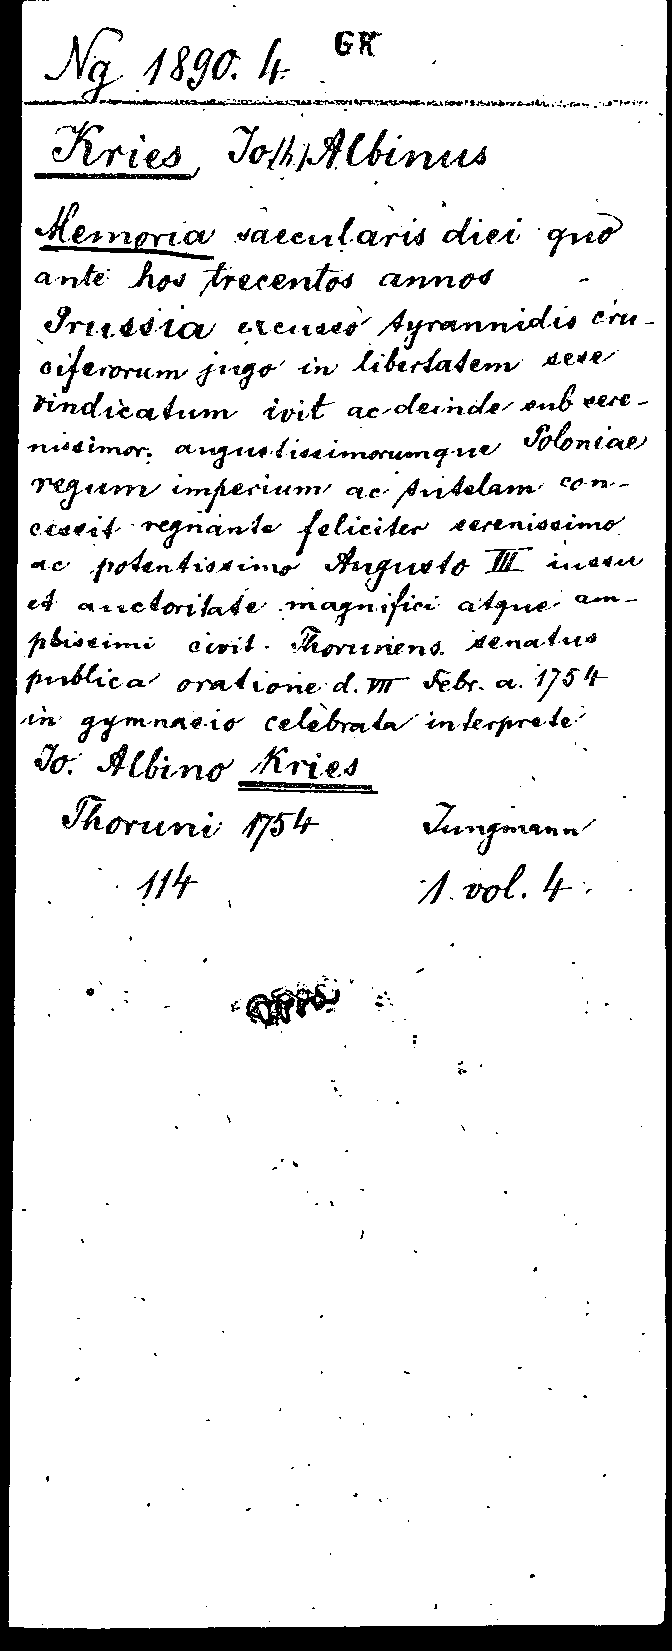 Ng 1890. 4. GK
Kries, Jo(h) Albinus
Memoria saecularis diei quo
ante hos trecentos annos
Prussia excusso tyrannidis cru-
ciferorum jugo in libertatem sese
vindicatum ivit ac deinde sub sere-
nissimor. augustissimorumque Poloniae
regum imperium ac tutelam con-
cessit regnante feliciter serenissimo
ac potentissimo Augusto III iussu
et auctoritate magnifici atque am-
plissimi civit. Thoruniens. senatus
publica oratione d. VII Febr. a. 1754
in gymnasio celebrata interprete
Jo. Albino Kries
Thoruni 1754 Jungmann
114 1 vol. 4.